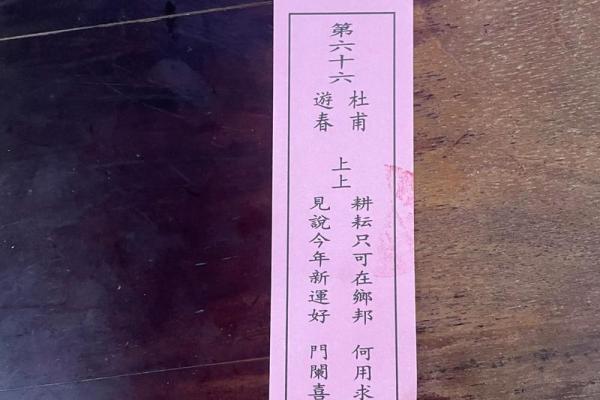 第六十六
杜甫
遊春
上上
耕耘只可在鄉邦 何用求
見說今年新運好 門闌喜